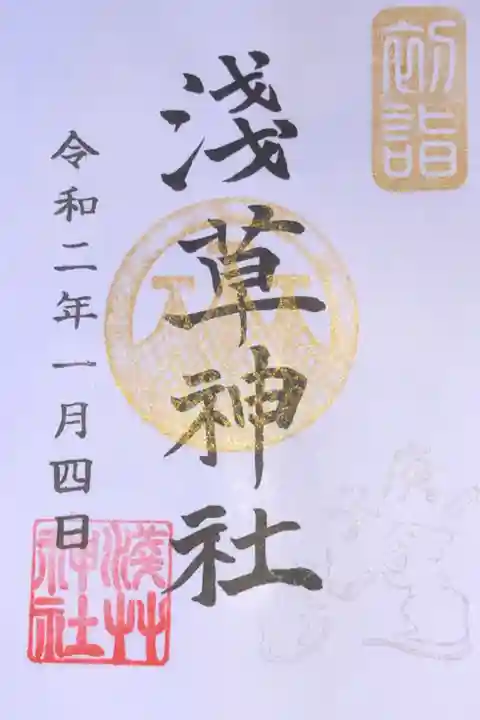 初詣
淺草神社
令和二年一月四日
淺草
神社